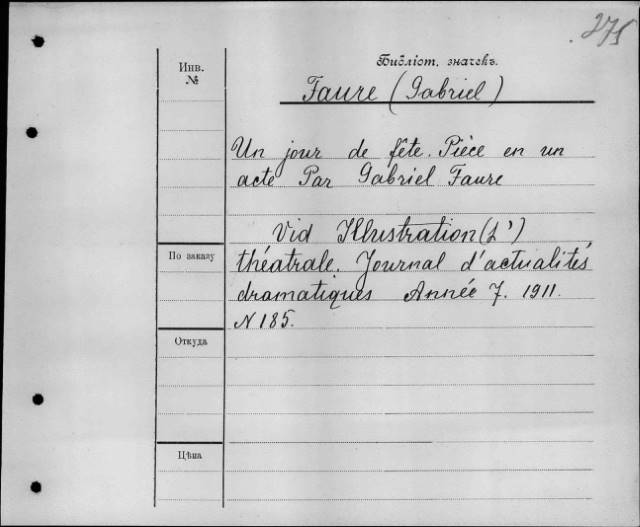 275
Инв.
№
Библіот. значекъ.
Faure (Gabriel)
Un jour de fête. Pièce en un
acte Par Gabriel Faure
Vid Illustration (L')
théatrale. Journal d'actualités
dramatiques Année 7. 1911.
N 185.
По заказу
Откуда
Цѣна